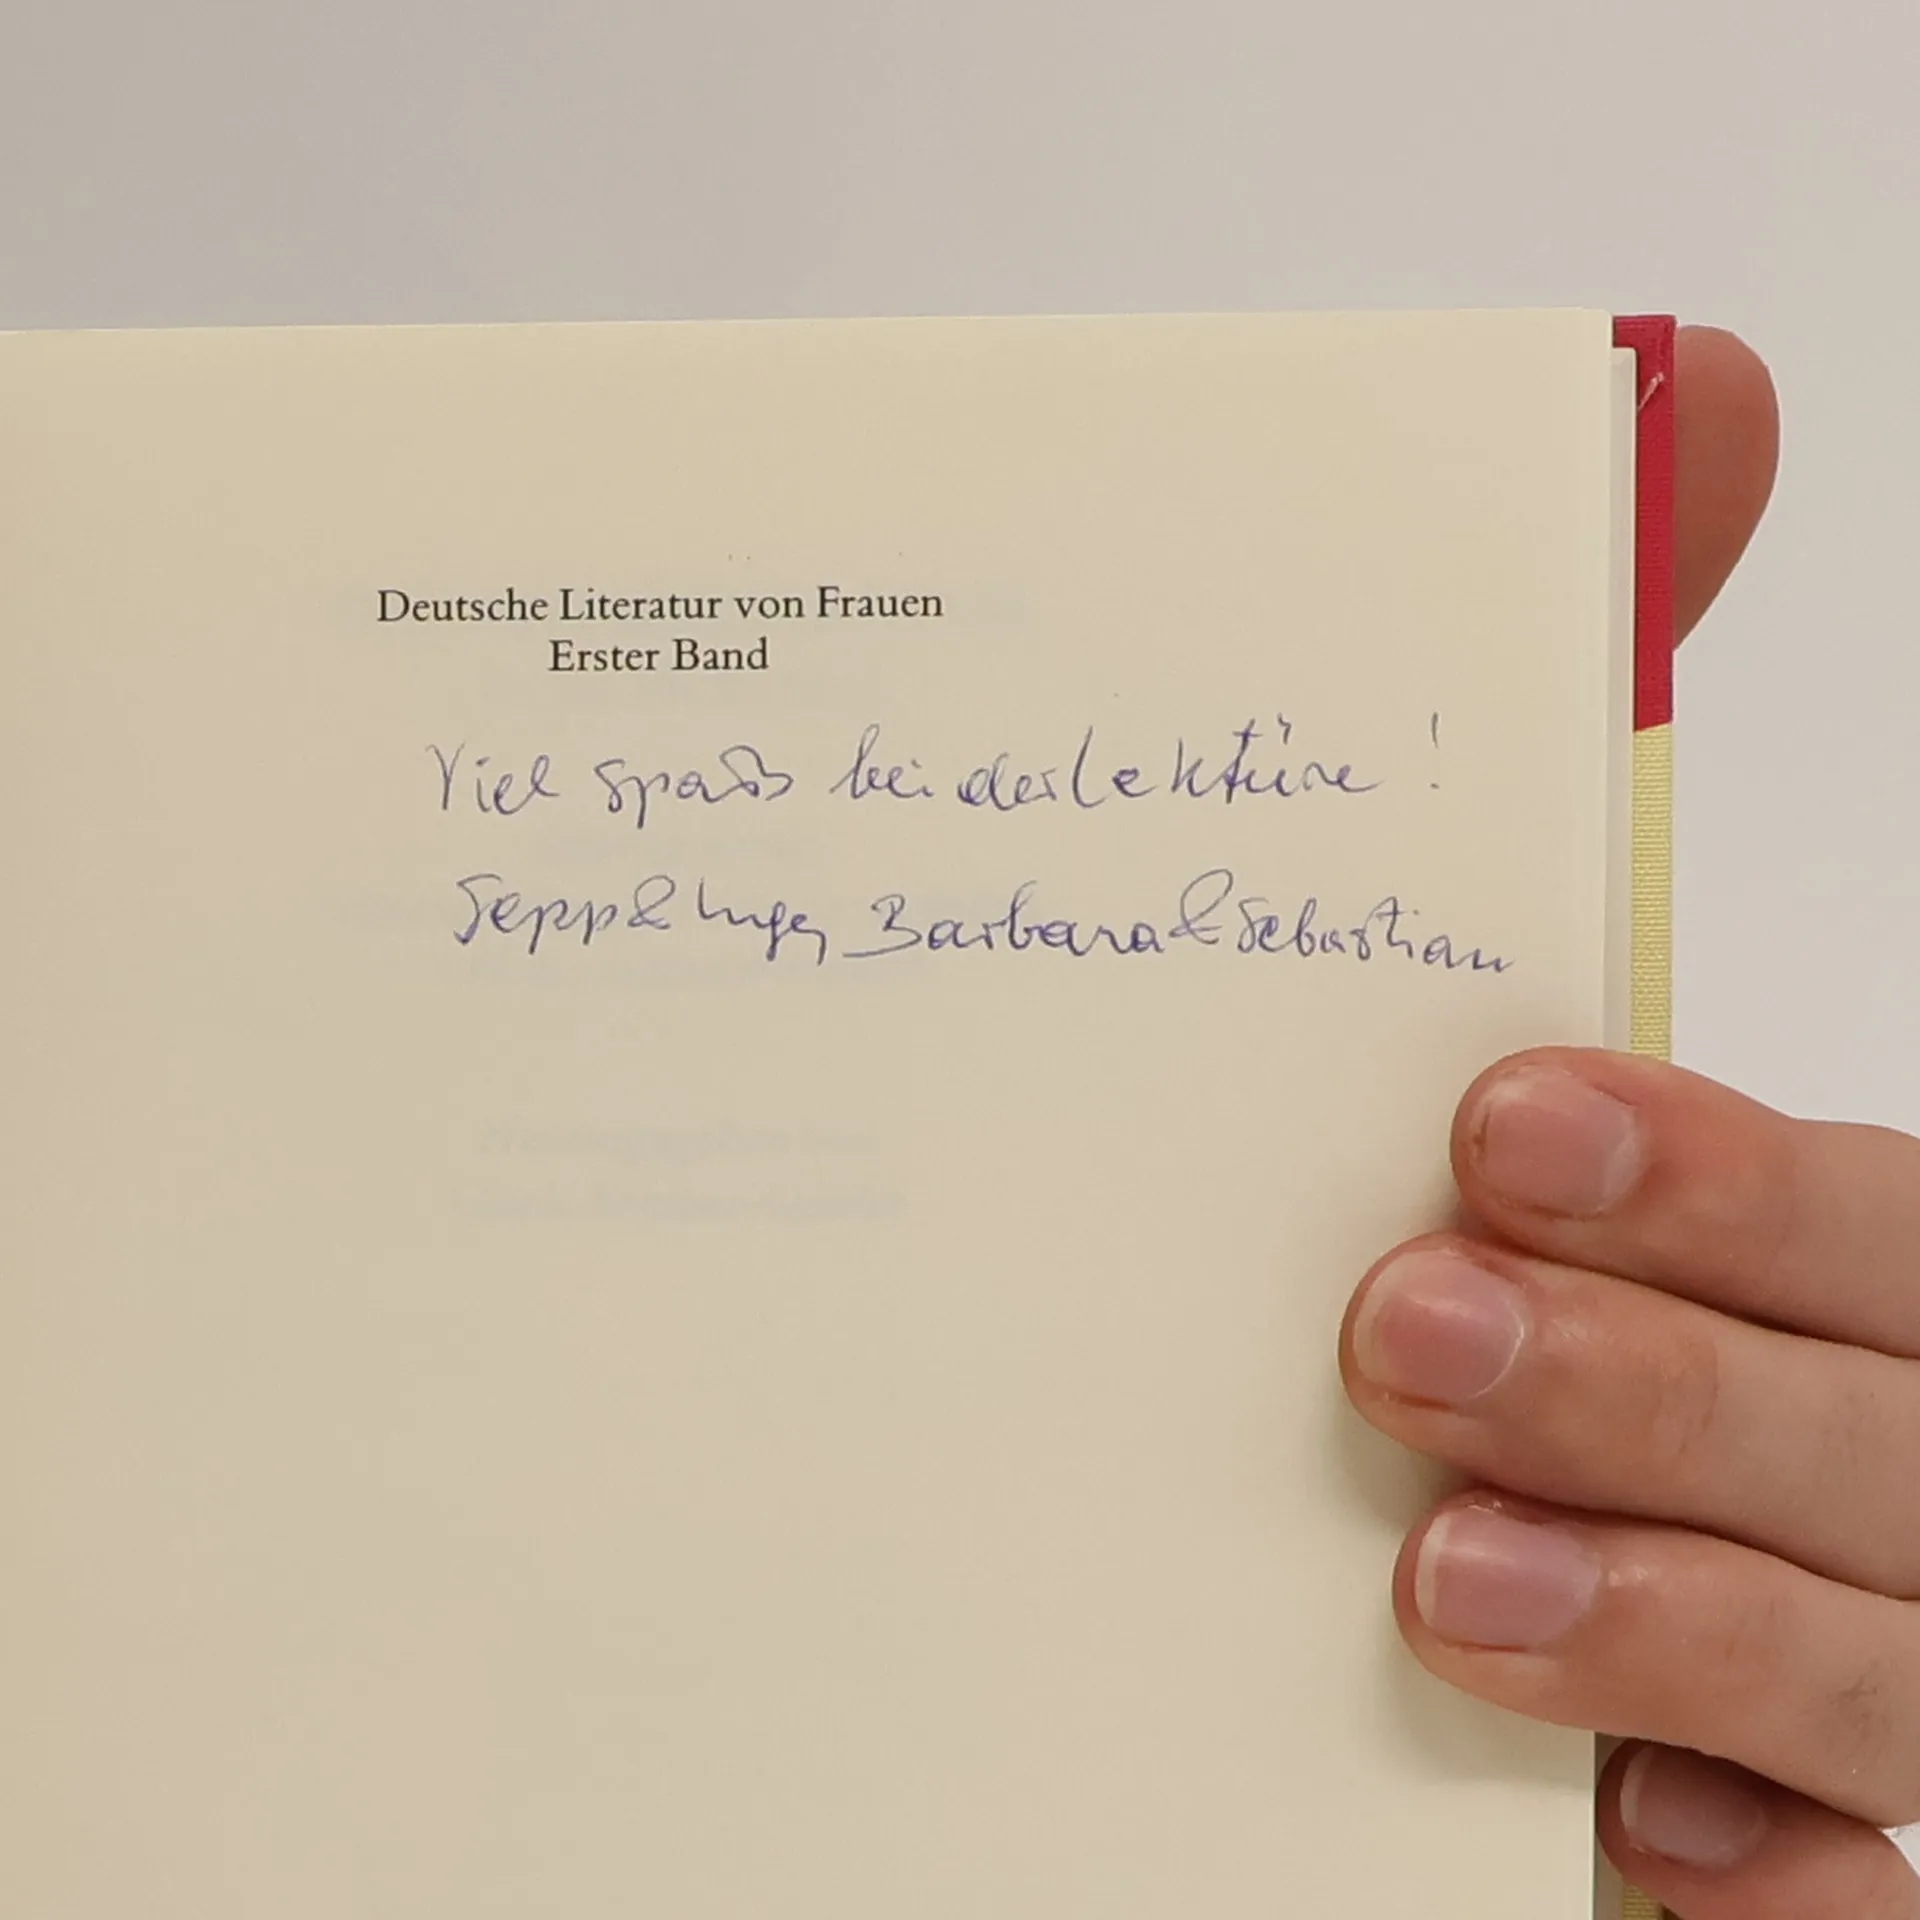 Deutsche Literatur von Frauen
Erster Band
Viel Spaß bei der Lektüre!
Sepp & Inge, Barbara & Sebastian